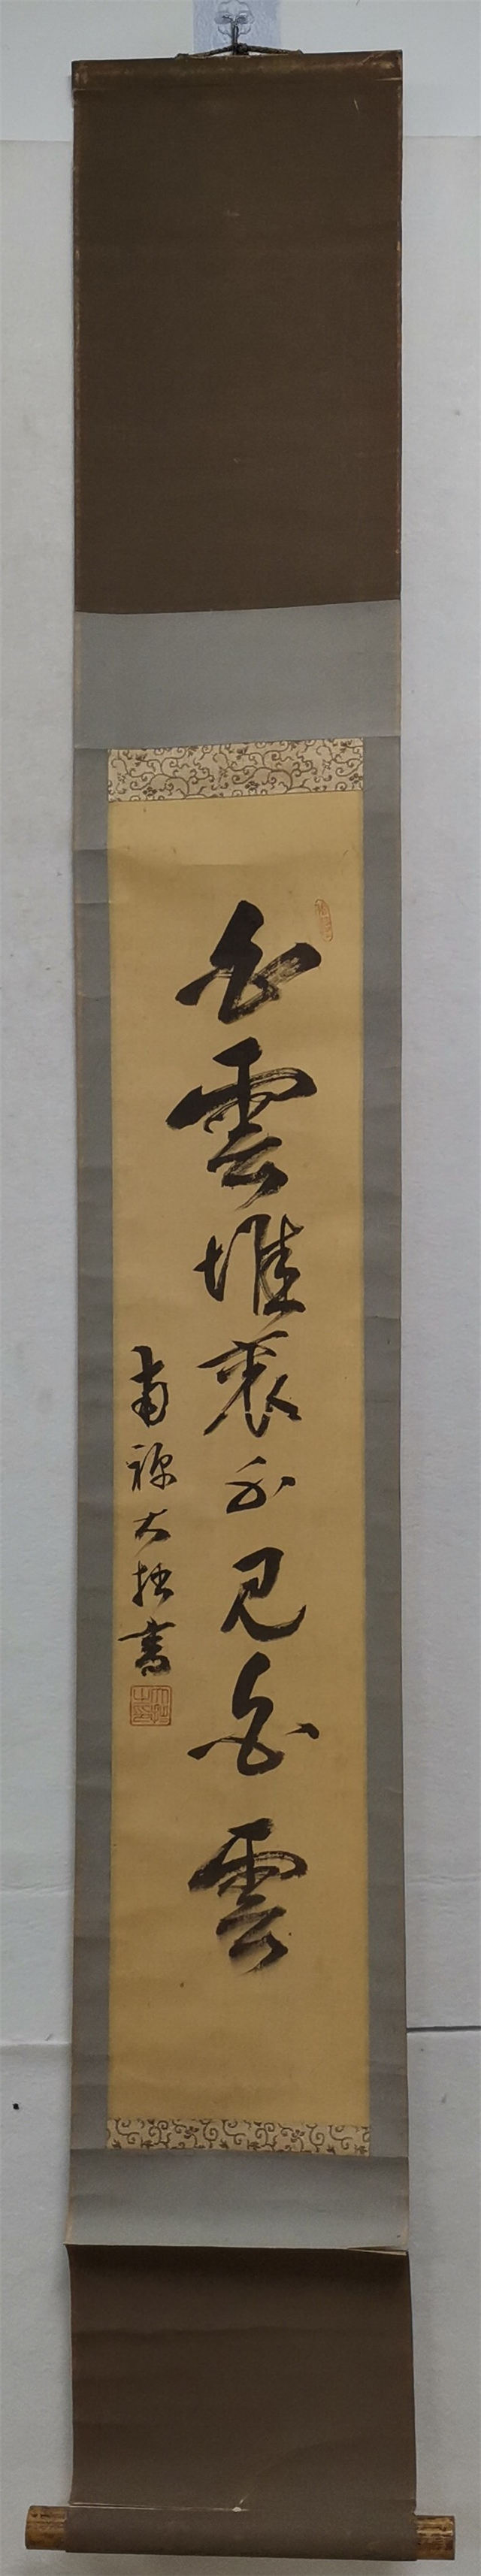 白雲堆裏不見白雲
南禅大拙書